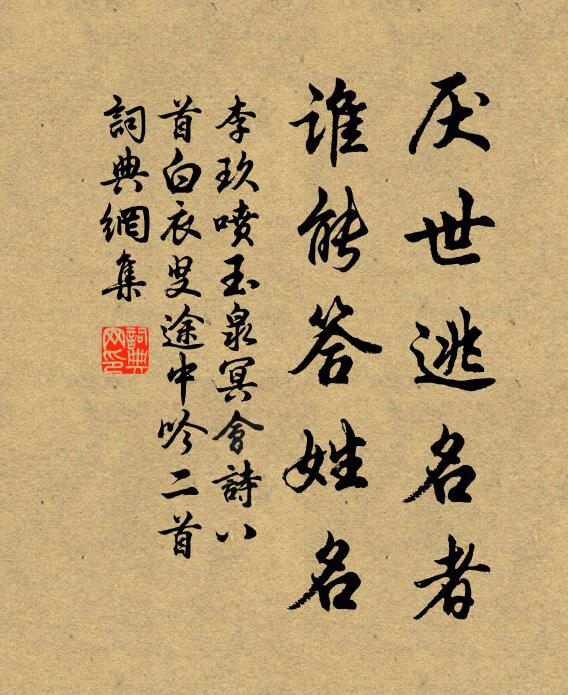 厌世逃名者
谁能答姓名
李玖喷玉泉冥會詩八
首白衣叟途中吟二首
詞典網集
詞典
网印